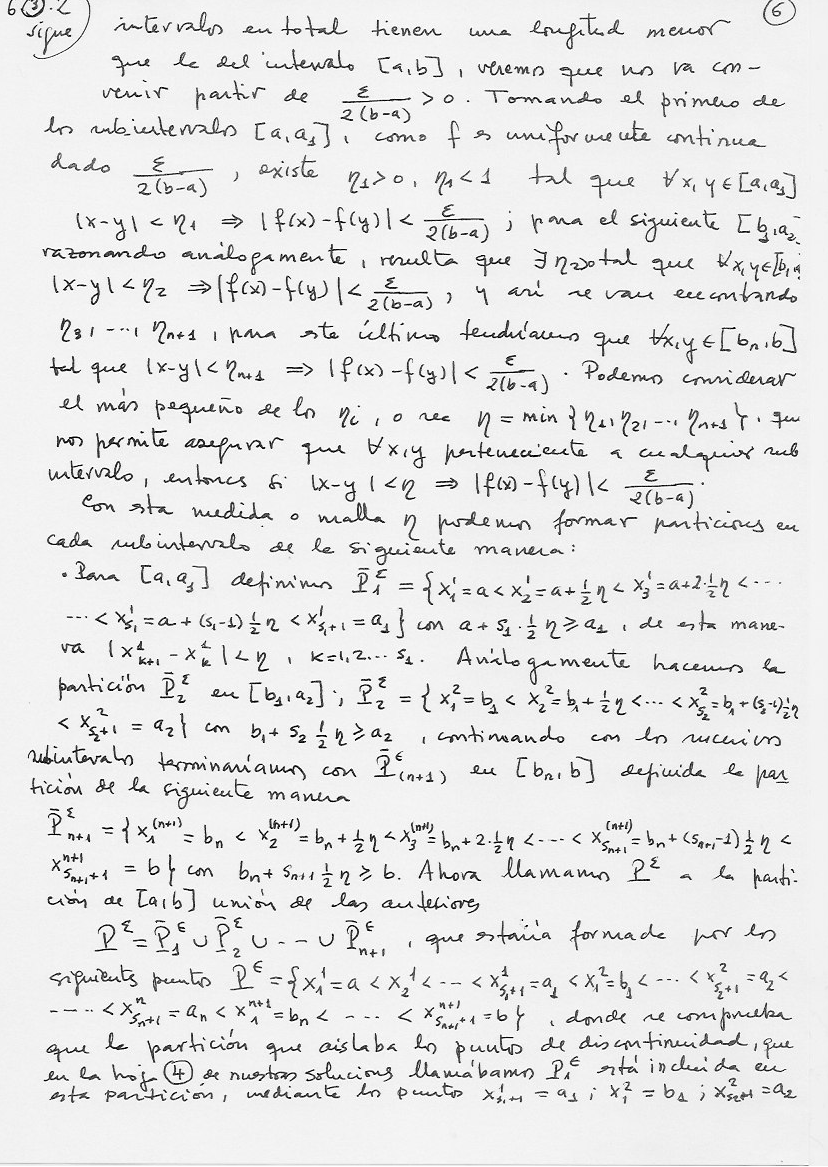 6 ③.2 ⑥
sigue
intervalos en total tienen una longitud menor
que la del intervalo [a,b], veremos que nos va con-
venir partir de ε/2(b-a) > 0. Tomando el primero de
los subintervalos [a,a₁], como f es uniformemente continua
dado ε/2(b-a), existe η₁>0, η₁<1 tal que ∀x,y∈[a,a₁]
|x-y| < η₁ ⇒ |f(x)-f(y)| < ε/2(b-a); para el siguiente [b₁,a₂
razonando análogamente, resulta que ∃η₂>0 tal que ∀x,y∈[b₁,a
|x-y| < η₂ ⇒ |f(x)-f(y)| < ε/2(b-a), y así se van encontrando
η₃, ..., ηₙ₊₁, para este último tendríamos que ∀x,y∈[bₙ,b]
tal que |x-y| < ηₙ₊₁ ⇒ |f(x)-f(y)| < ε/2(b-a). Podemos considerar
el más pequeño de los ηᵢ, o sea η = min {η₁,η₂, ..., ηₙ₊₁}, que
nos permite asegurar que ∀x,y perteneciente a cualquier sub
intervalo, entonces si |x-y| < η ⇒ |f(x)-f(y)| < ε/2(b-a).
Con esta medida o malla η podemos formar particiones en
cada subintervalo de la siguiente manera:
• Para [a,a₁] definimos P̄₁^ε = {x₁¹=a < x₂¹=a+½η < x₃¹=a+2·½η < ···
··· < x¹_{s₁}=a+(s₁-1)½η < x¹_{s₁+1}=a₁} con a+s₁·½η ≥ a₁, de esta mane-
ra |x¹_{k+1} - x¹_k| < η, k=1,2...s₁. Análogamente hacemos la
partición P̄₂^ε en [b₁,a₂]; P̄₂^ε = {x₁²=b₁ < x₂²=b₁+½η < ··· < x²_{s₂}=b₁+(s₂-1)½η
< x²_{s₂+1} = a₂} con b₁+s₂½η ≥ a₂, continuando con los sucesivos
subintervalos terminaríamos con P̄^ε_{(n+1)} en [bₙ,b] definida la par
tición de la siguiente manera
P̄^ε_{n+1} = {x₁^{(n+1)} = bₙ < x₂^{(n+1)} = bₙ+½η < x₃^{(n+1)} = bₙ+2·½η < ··· < x^{(n+1)}_{sₙ₊₁} = bₙ+(sₙ₊₁-1)½η <
x^{n+1}_{sₙ₊₁+1} = b} con bₙ+sₙ₊₁½η ≥ b. Ahora llamamos P^ε a la parti-
ción de [a,b] unión de las anteriores
P^ε = P̄₁^ε ∪ P̄₂^ε ∪ ··· ∪ P̄^ε_{n+1}, que estaría formada por los
siguientes puntos P^ε = {x₁¹=a < x₂¹ < ··· < x¹_{s₁+1}=a₁ < x₁²=b₁ < ··· < x²_{s₂+1}=a₂ <
···· < xⁿ_{sₙ+1} = aₙ < x₁^{n+1} = bₙ < ··· < x^{n+1}_{sₙ₊₁+1} = b}, donde se comprueba
que la partición que aislaba los puntos de discontinuidad, que
en la hoja ④ de nuestras soluciones llamábamos P₁^ε está incluida en
esta partición, mediante los puntos x¹_{s₁+1} = a₁; x₁² = b₁; x²_{s₂+1} = a₂